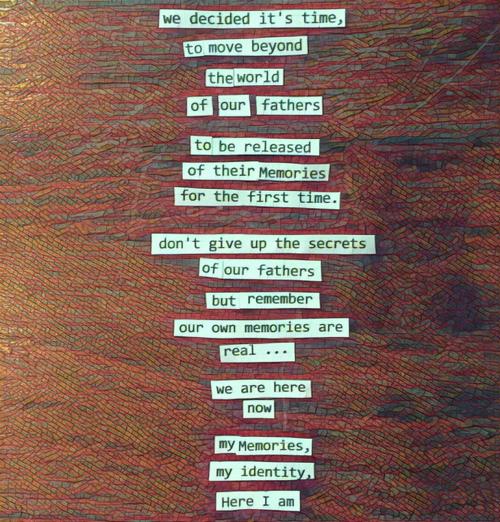 we decided it's time,
to move beyond
the world
of our fathers
to be released
of their Memories
for the first time.
don't give up the secrets
of our fathers
but remember
our own memories are
real ...
we are here
now
my Memories,
my identity,
Here I am